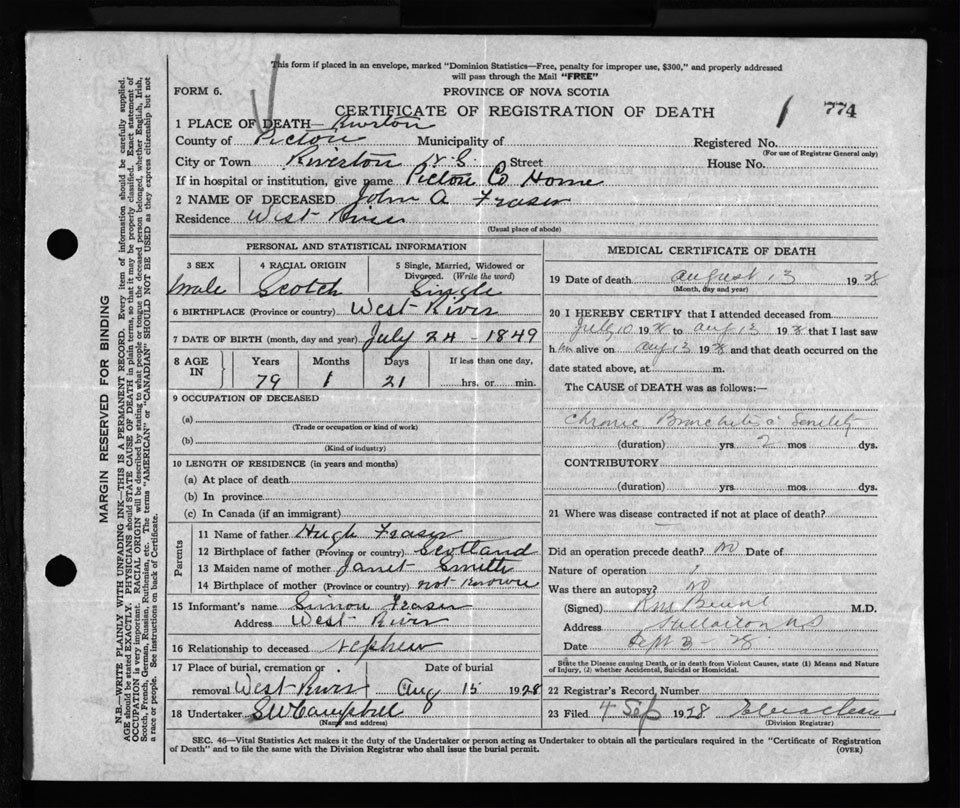 This form if placed in an envelope, marked "Dominion Statistics—Free, penalty for improper use, $300," and properly addressed
will pass through the Mail "FREE"
FORM 6. PROVINCE OF NOVA SCOTIA
CERTIFICATE OF REGISTRATION OF DEATH 774
1 PLACE OF DEATH— Riverton
County of Pictou Municipality of Registered No.
(For use of Registrar General only)
City or Town Riverton N.S. Street House No.
If in hospital or institution, give name Pictou Co Home
2 NAME OF DECEASED John A Fraser
Residence West River
(Usual place of abode)
PERSONAL AND STATISTICAL INFORMATION
3 SEX 4 RACIAL ORIGIN 5 Single, Married, Widowed or
Divorced. (Write the word)
Male Scotch Single
6 BIRTHPLACE (Province or country) West River
7 DATE OF BIRTH (month, day and year) July 24 - 1849
8 AGE IN Years Months Days If less than one day,
79 1 21 hrs. or min.
9 OCCUPATION OF DECEASED
(a)
(Trade or occupation or kind of work)
(b)
(Kind of industry)
10 LENGTH OF RESIDENCE (in years and months)
(a) At place of death
(b) In province
(c) In Canada (if an immigrant)
Parents
11 Name of father Hugh Fraser
12 Birthplace of father (Province or country) Scotland
13 Maiden name of mother Janet Smith
14 Birthplace of mother (Province or country) not known
15 Informant's name Simon Fraser
Address West River
16 Relationship to deceased Nephew
17 Place of burial, cremation or Date of burial
removal West River Aug 15 1928
18 Undertaker S W Campbell
(Name and address)
MEDICAL CERTIFICATE OF DEATH
19 Date of death August 13 1928
(Month, day and year)
20 I HEREBY CERTIFY that I attended deceased from
July 10 1928 to Aug 13 1928 that I last saw
him alive on Aug 13 1928 and that death occurred on the
date stated above, at m.
The CAUSE of DEATH was as follows:—
Chronic Bronchitis c Senility
(duration) yrs 2 mos dys.
CONTRIBUTORY
(duration) yrs. mos. dys.
21 Where was disease contracted if not at place of death?
Did an operation precede death? No Date of
Nature of operation
Was there an autopsy? No
(Signed) M.D.
Address NS
Date Sept 3 - 28
State the Disease causing Death, or in death from Violent Causes, state (1) Means and Nature
of Injury, (2) whether Accidental, Suicidal or Homicidal.
22 Registrar's Record Number
23 Filed 4 Sep 1928
(Division Registrar)
SEC. 46—Vital Statistics Act makes it the duty of the Undertaker or person acting as Undertaker to obtain all the particulars required in the "Certificate of Registration
of Death" and to file the same with the Division Registrar who shall issue the burial permit. (OVER)
MARGIN RESERVED FOR BINDING
N.B.—WRITE PLAINLY WITH UNFADING INK—THIS IS A PERMANENT RECORD. Every item of information should be carefully supplied.
AGE should be stated EXACTLY. PHYSICIANS should STATE CAUSE OF DEATH in plain terms, so that it may be properly classified. Exact statement of
OCCUPATION is very important. RACIAL ORIGIN will be described by stating to what people or tongue the deceased person belonged, whether English, Irish,
Scotch, French, German, Russian, Ruthenian, etc. The terms "AMERICAN" or "CANADIAN" SHOULD NOT BE USED as they express citizenship but not
a race or people. See instructions on back of Certificate.